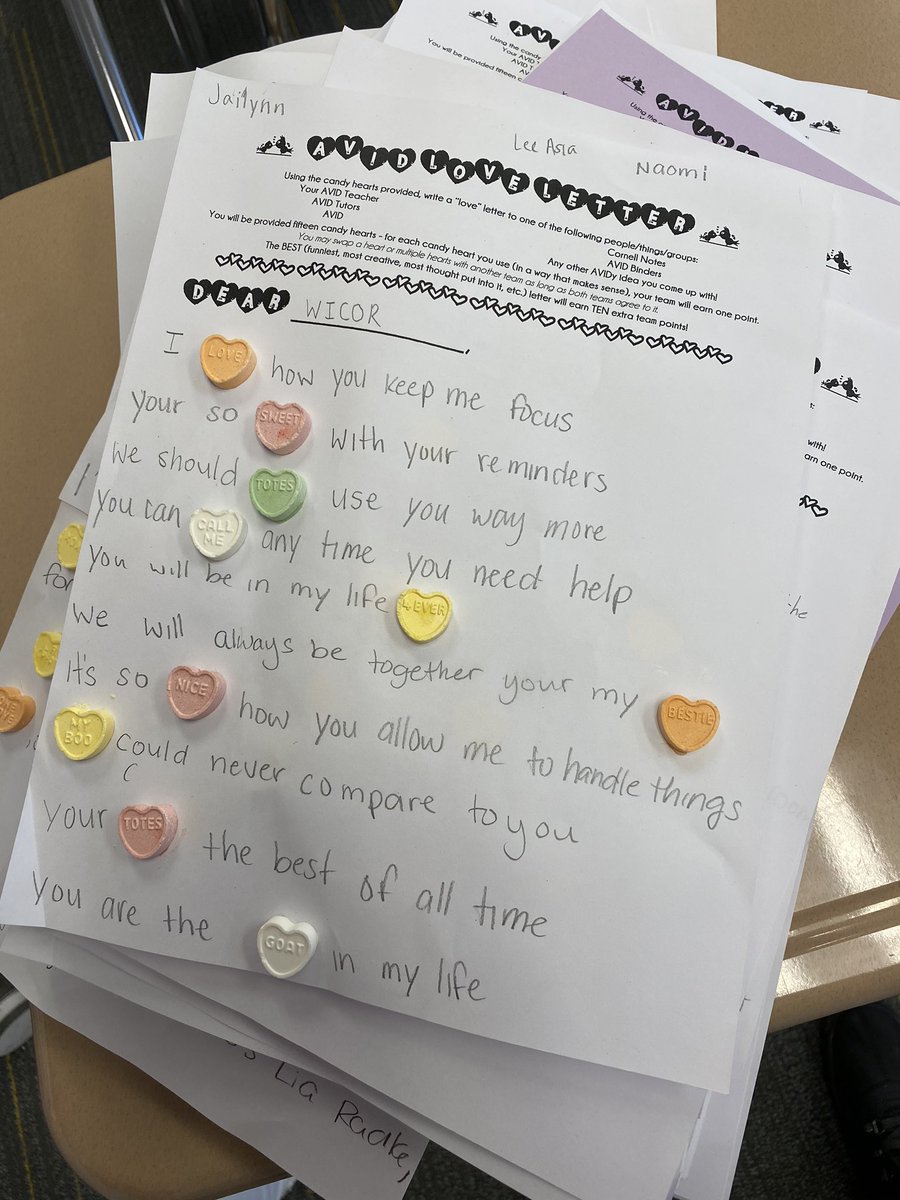 Jailynn
Lee Asia
Naomi
AVID LOVE LETTER
Using the candy hearts provided, write a "love" letter to one of the following people/things/groups:
Your AVID Teacher
AVID Tutors
AVID
Cornell Notes
AVID Binders
Any other AVIDy Idea you come up with!
You will be provided fifteen candy hearts - for each candy heart you use (in a way that makes sense), your team will earn one point.
You may swap a heart or multiple hearts with another team as long as both teams agree to it.
The BEST (funniest, most creative, most thought put into it, etc.) letter will earn TEN extra team points!
DEAR WICOR,
I LOVE how you keep me focus
your so SWEET with your reminders
We should TOTES use you way more
You can CALL ME any time you need help
You will be in my life 4-EVER
We will always be together your my BESTIE
It's so NICE how you allow me to handle things
MY BOO could never compare to you
Your TOTES the best of all time
You are the GOAT in my life
Lia Radke,